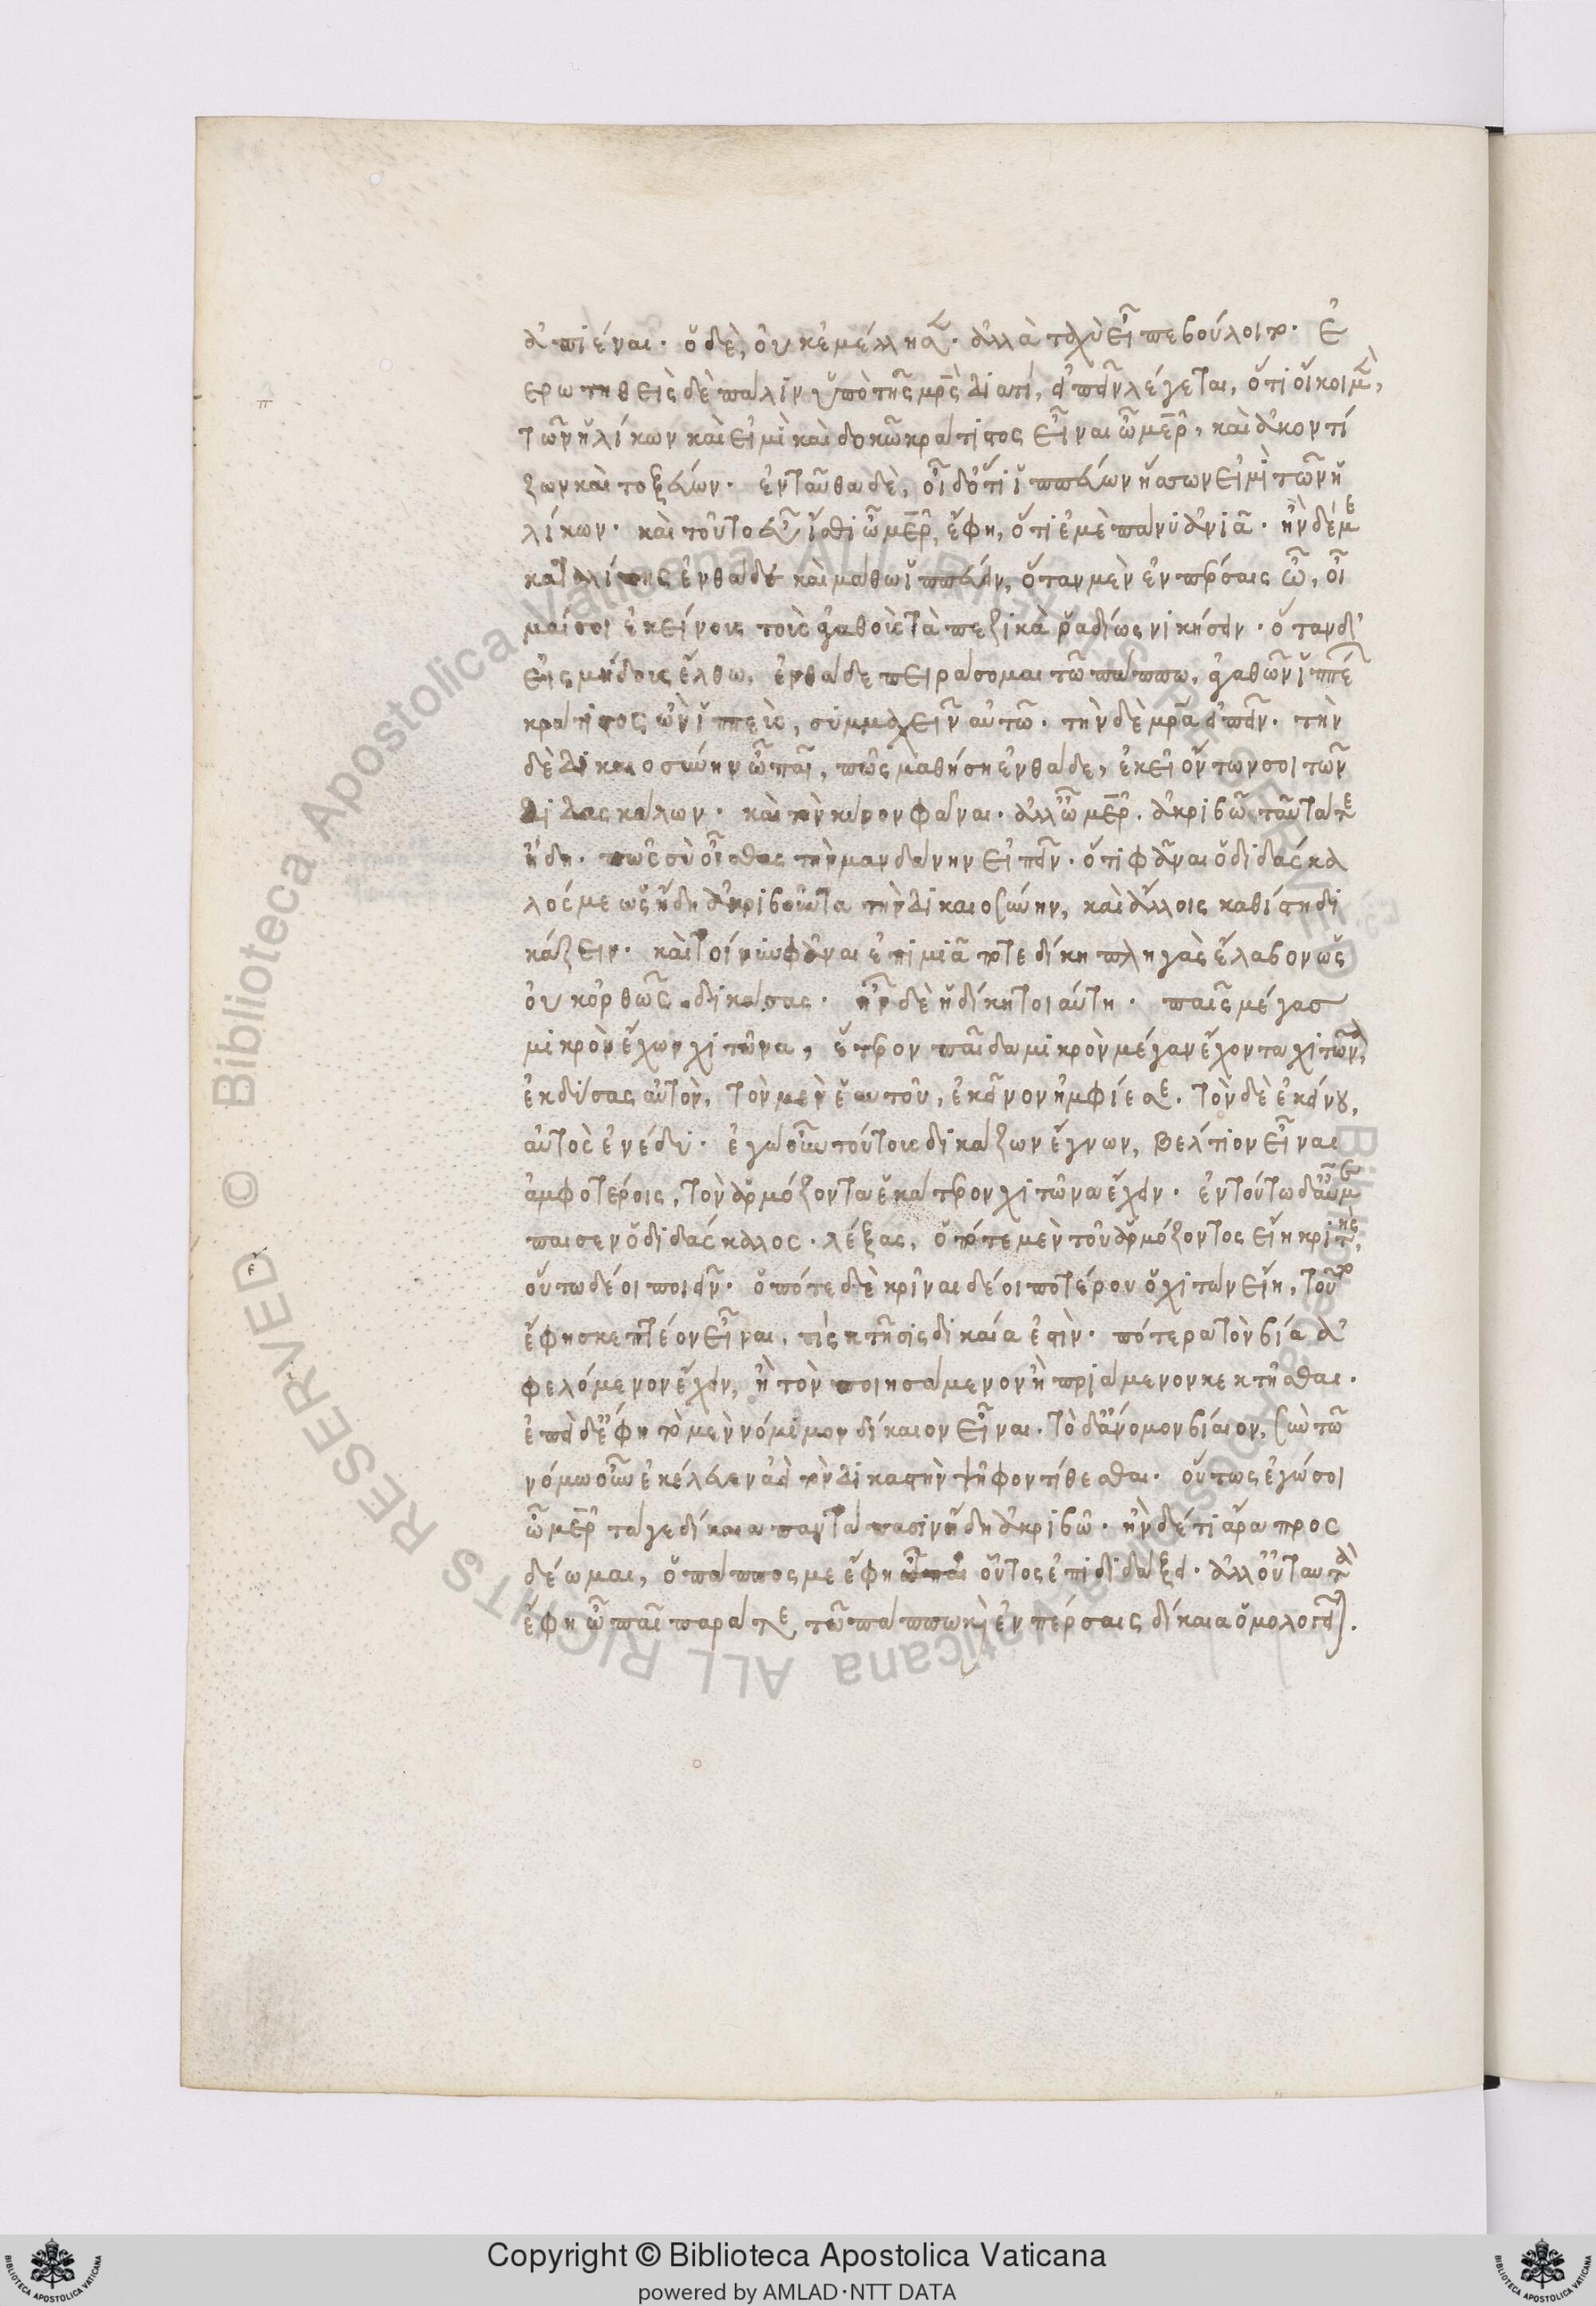 ἀπιέναι. ὁ δὲ, οὐκ ἐμέλλησ. ἀλλὰ ταχὺ εἶπε βούλοιτο. ἐ
ερωτηθεὶς δὲ πάλιν ὑπὸ τῆς μρ̅ς διατί, εἰπεῖν λέγεται, ὅτι οἴκοι μὲν,
τῶν ἡλίκων καὶ εἰμὶ καὶ δοκῶ κράτιστος εἶναι ὦ μερ̅, καὶ ἀκοντί
ζων καὶ τοξεύων. ἐνταῦθα δὲ, οἶδ ὅτι ἱππεύων ἥσσων εἰμὶ τῶν ἡ
λίκων. καὶ τοῦτο εὖ ἴσθι ὦ μερ̅, ἔφη, ὅτι ἐμὲ πάνυ ἀνιᾶ. ἢν δέ με
καταλίπης ἐνθάδε καὶ μάθω ἱππεύειν, ὅταν μὲν ἐν πέρσαις ὦ, οἶ
μαί σοι ἐκείνους τοὺς ἀγαθοὺς τὰ πεζικὰ ῥαδίως νικήσειν. ὅταν δ'
εἰς μήδους ἔλθω, ἐνθάδε πειράσομαι τῶ πάππω, ἀγαθῶν ἱππέων
κράτιστος ὢν ἱππεὺς, συμμαχεῖν αὐτῶ. τὴν δὲ μρ̅α εἰπεῖν. τὴν
δὲ δικαιοσύνην ὦ παῖ, πῶς μαθήση ἐνθάδε, ἐκεῖ ὄντων σοι τῶν
διδασκάλων. καὶ τὸν κῦρον φάναι. ἀλλ ὦ μερ̅. ἀκριβῶ ταῦτα γε
ἤδη. πῶς σὺ οἶσθας τὴν μανδάνην εἰπεῖν. ὅτι φάναι ὁ διδάσκα
λός με ὡς ἤδη ἀκριβοῦντα τὴν δικαιοσύνην, καὶ ἄλλοις καθίστη δι
κάζειν. καὶ τοίνυν φάναι ἐπὶ μιᾶ ποτε δίκη πληγὰς ἔλαβον ὡς
οὐκ ὀρθῶς δικάσας. ἦν δὲ ἡ δίκη τοιαύτη. παῖς μέγας
μικρὸν ἔχων χιτῶνα, ἕτερον παῖδα μικρὸν μέγαν ἔχοντα χιτῶνα,
ἐκδύσας αὐτὸν, τὸν μὲν ἑαυτοῦ, ἐκεῖνον ἠμφίεσε. τὸν δὲ ἐκείνου,
αὐτὸς ἐνέδυ. ἐγὼ οὖν τούτοις δικάζων ἔγνων, βέλτιον εἶναι
ἀμφοτέροις, τὸν ἁρμόζοντα ἑκάτερον χιτῶνα ἔχειν. ἐν τούτω δ αὖ μ
παισεν ὁ διδάσκαλος. λέξας, ὁπότε μὲν τοῦ ἁρμόζοντος εἴην κριτὴς,
οὕτω δέοι ποιεῖν. ὁπότε δὲ κρῖναι δέοι ποτέρου ὁ χιτὼν εἴη, τοῦτο
ἔφη σκεπτέον εἶναι, τίς κτῆσις δικαία ἐστὶν. πότερα τὸν βία ἀ
φελόμενον ἔχειν, ἢ τὸν ποιησάμενον ἢ πριάμενον κεκτῆσθαι.
ἐπεὶ δ ἔφη τὸ μὲν νόμιμον δίκαιον εἶναι. τὸ δ ἄνομον βίαιον, σὺν τῶ
νόμω οὖν ἐκέλευεν ἀεὶ τὸν δικαστὴν ψῆφον τίθεσθαι. οὕτως ἐγώ σοι
ὦ μερ̅ τά γε δίκαια πάντα πᾶσιν ἤδη ἀκριβῶ. ἢν δέ τι ἄρα προσ
δέωμαι, ὁ πάππος με ἔφη ὦ παῖ οὗτος ἐπιδιδάξει. ἀλλ οὐ ταυτὰ
ἔφη ὦ παῖ παρά τε τῶ πάππω κ̀ ἐν πέρσαις δίκαια ὁμολογεῖται.
Copyright © Biblioteca Apostolica Vaticana
powered by AMLAD·NTT DATA
Biblioteca Apostolica Vaticana ALL RIGHTS RESERVED ©